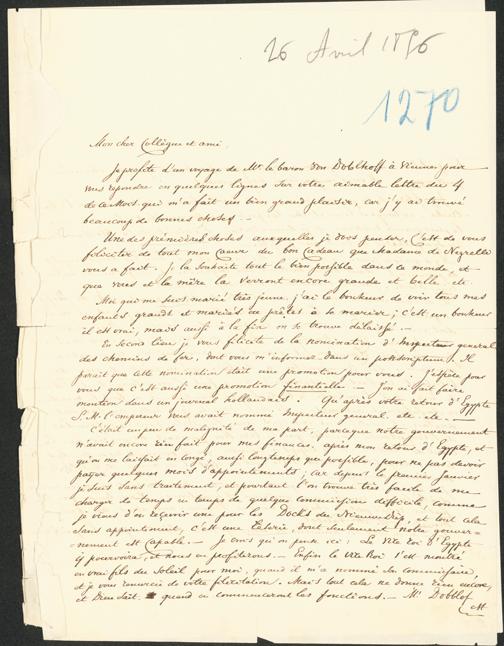 26 Avril 1856
1270
Mon cher Collègue et ami.
Je profite d'un voyage de Mr. le baron Von Doblhoff à Vienne pour
vous repondre en quelques lignes sur votre aimable lettre du 4
de ce Mois qui m'a fait un bien grand plaisir, car j'y ai trouvé
beaucoup de bonnes choses. —
Une des premières choses auxquelles je dois penser, C'est de vous
feliciter de tout mon Cœur du bon Cadeau que Madame de Negrelli
vous a fait. Je la souhaite tout le bien possible dans ce monde, et
que vous et la mère la verront encore grande et belle etc.
Moi qui me suis marié très jeune j'ai le bonheur de voir tous mes
enfants grands et mariés ou prêtes à se marier; c'est un bonheur
il est vrai, mais aussi à la fin on se trouve délaissé. —
En second lieu je vous felicite de la nomination d'Inspecteur general
des chemins de fer, dont vous m'informez dans un postscriptum. Il
parait que cette nomination était une promotion pour vous. J'espère pour
vous que c'est aussi une promotion financielle. — J'en ai fait faire
mention dans un journal hollandais. Qu'après votre retour d'Egypte
S. M. l'empereur vous avait nommé Inspecteur general etc etc. —
C'était un peu de malignité de ma part, parceque notre gouvernement
n'avait encore rien fait pour mes finances, après mon retour d'Egypte, et
qu'on me laissait en congé, aussi longtemps que possible, pour ne pas devoir
payer quelques mois d'appointements; car depuis le premier janvier
je suis sans traitement, et pourtant l'on trouve très facile de me
charger de temps en temps de quelque commission difficile, comme
je viens d'en reçevoir une pour les Docks du Nieuwediep, et tout cela
sans appointement, c'est une , dont seulement notre gouver-
nement est Capable. — Je crois qu'on pense ici: Le Vice Roi d'Egypte
y pourvoira, et nous en profiterons. — Enfin le Vice Roi s'est montré
en vrai fils du Soleil pour moi, quand il m'a nommé son Commissaire,
et je vous remercie de votre felicitation. Mais tout cela ne donne rien encore,
et Dieu sait quand en commenceront les fonctions. — Mr. Doblhof